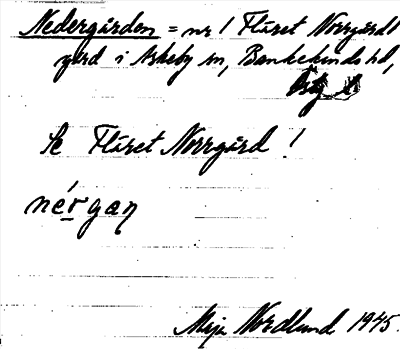 Nedergården = nr 1 Fläret Norrgård
gård i Askeby sn, Bankekinds hd,
Östg
Se Fläret Norrgård!
nérgan
Maja Nordlund 1945.